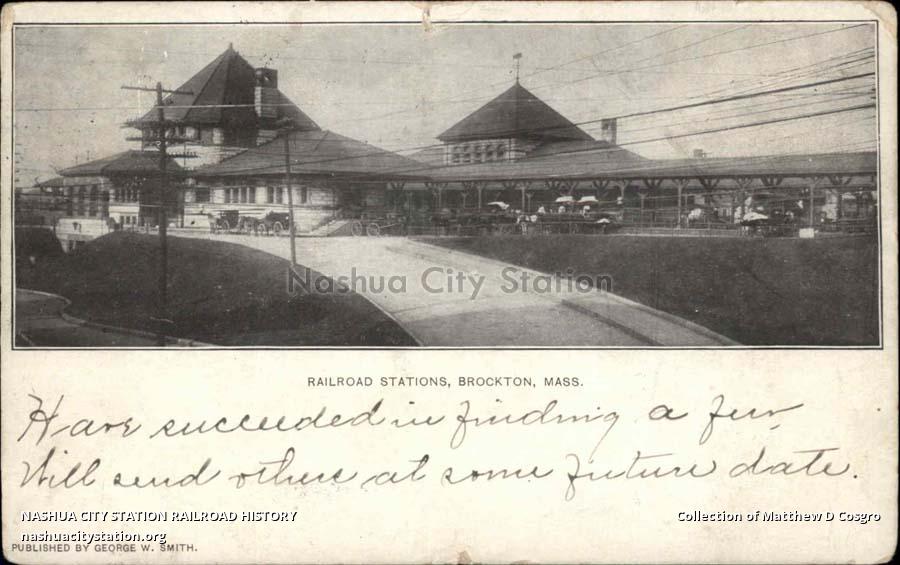 Nashua City Station
RAILROAD STATIONS, BROCKTON, MASS.
Have succeeded in finding a few,
Will send others at some future date.
NASHUA CITY STATION RAILROAD HISTORY
nashuacitystation.org
Collection of Matthew D Cosgro
PUBLISHED BY GEORGE W. SMITH.